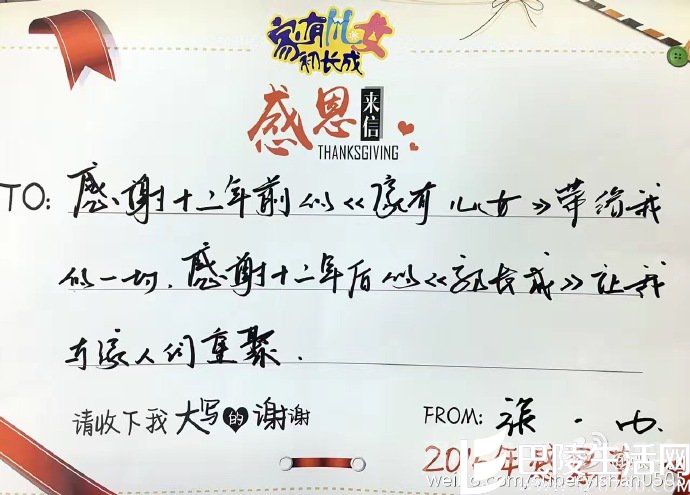 家有儿女
初长成
感恩来信
THANKSGIVING
TO: 感谢十二年前的《家有儿女》带给我
的一切,感谢十二年后的《初长成》让我
与家人们重聚.
请收下我 大写的谢谢
FROM: 张一山.
巴陵生活网